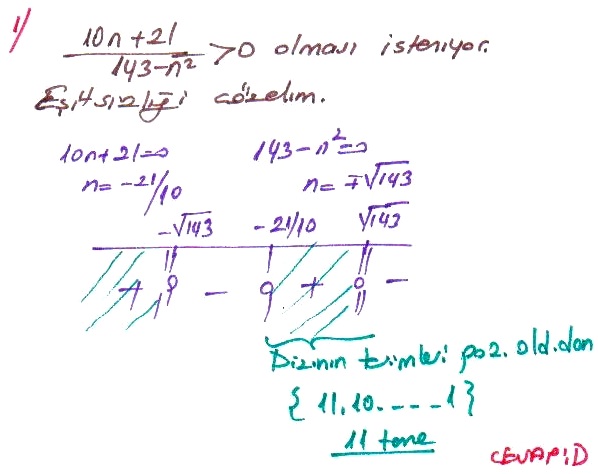 1/ 10n+21 / 143-n² >0 olması isteniyor.
Eşitsizliği çözelim.
10n+21=0 143-n²=0
n= -21/10 n= ∓√143
-√143 -21/10 √143
+ - + -
Dizinin terimleri poz. old.dan
{ 11,10, - - - - 1 }
11 tane
CEVAP:D